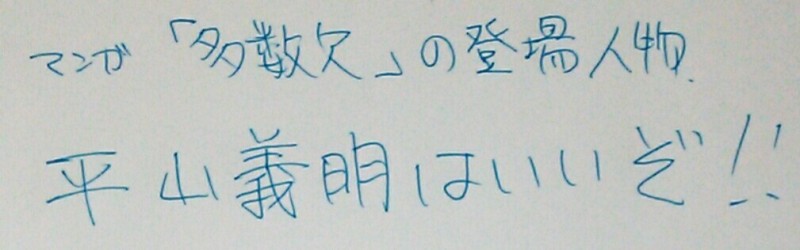 マンガ「多数欠」の登場人物
平山義明はいいぞ!!